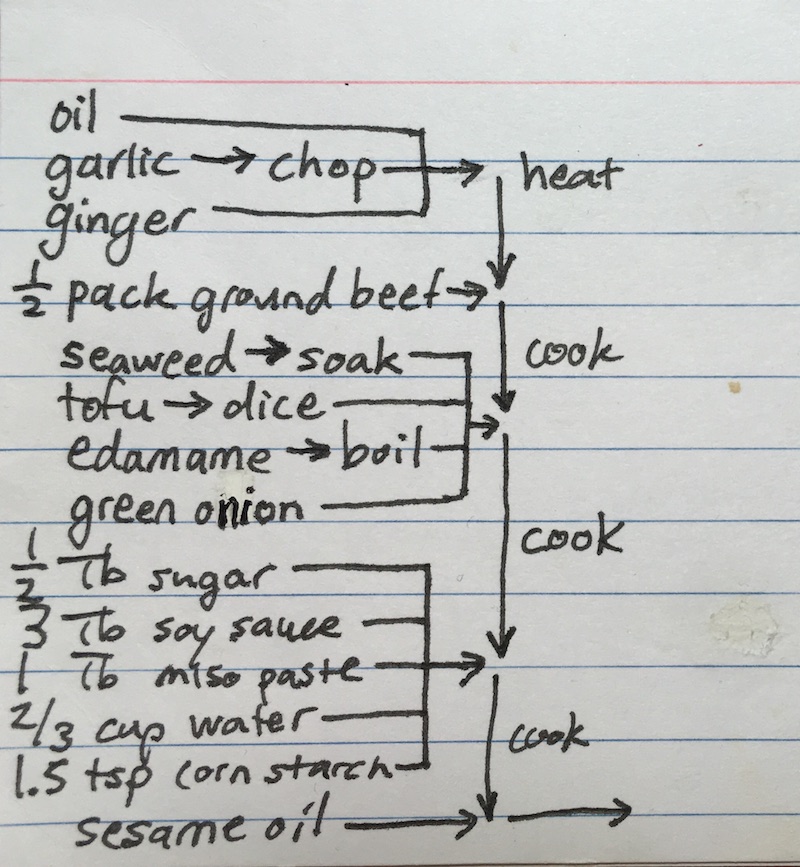 oil
garlic → chop → heat
ginger
1/2 pack ground beef →
seaweed → soak cook
tofu → dice →
edamame → boil
green onion
cook
1/2 Tb sugar
3 Tb soy sauce
1 Tb miso paste →
2/3 cup water
cook
1.5 tsp corn starch
sesame oil → →